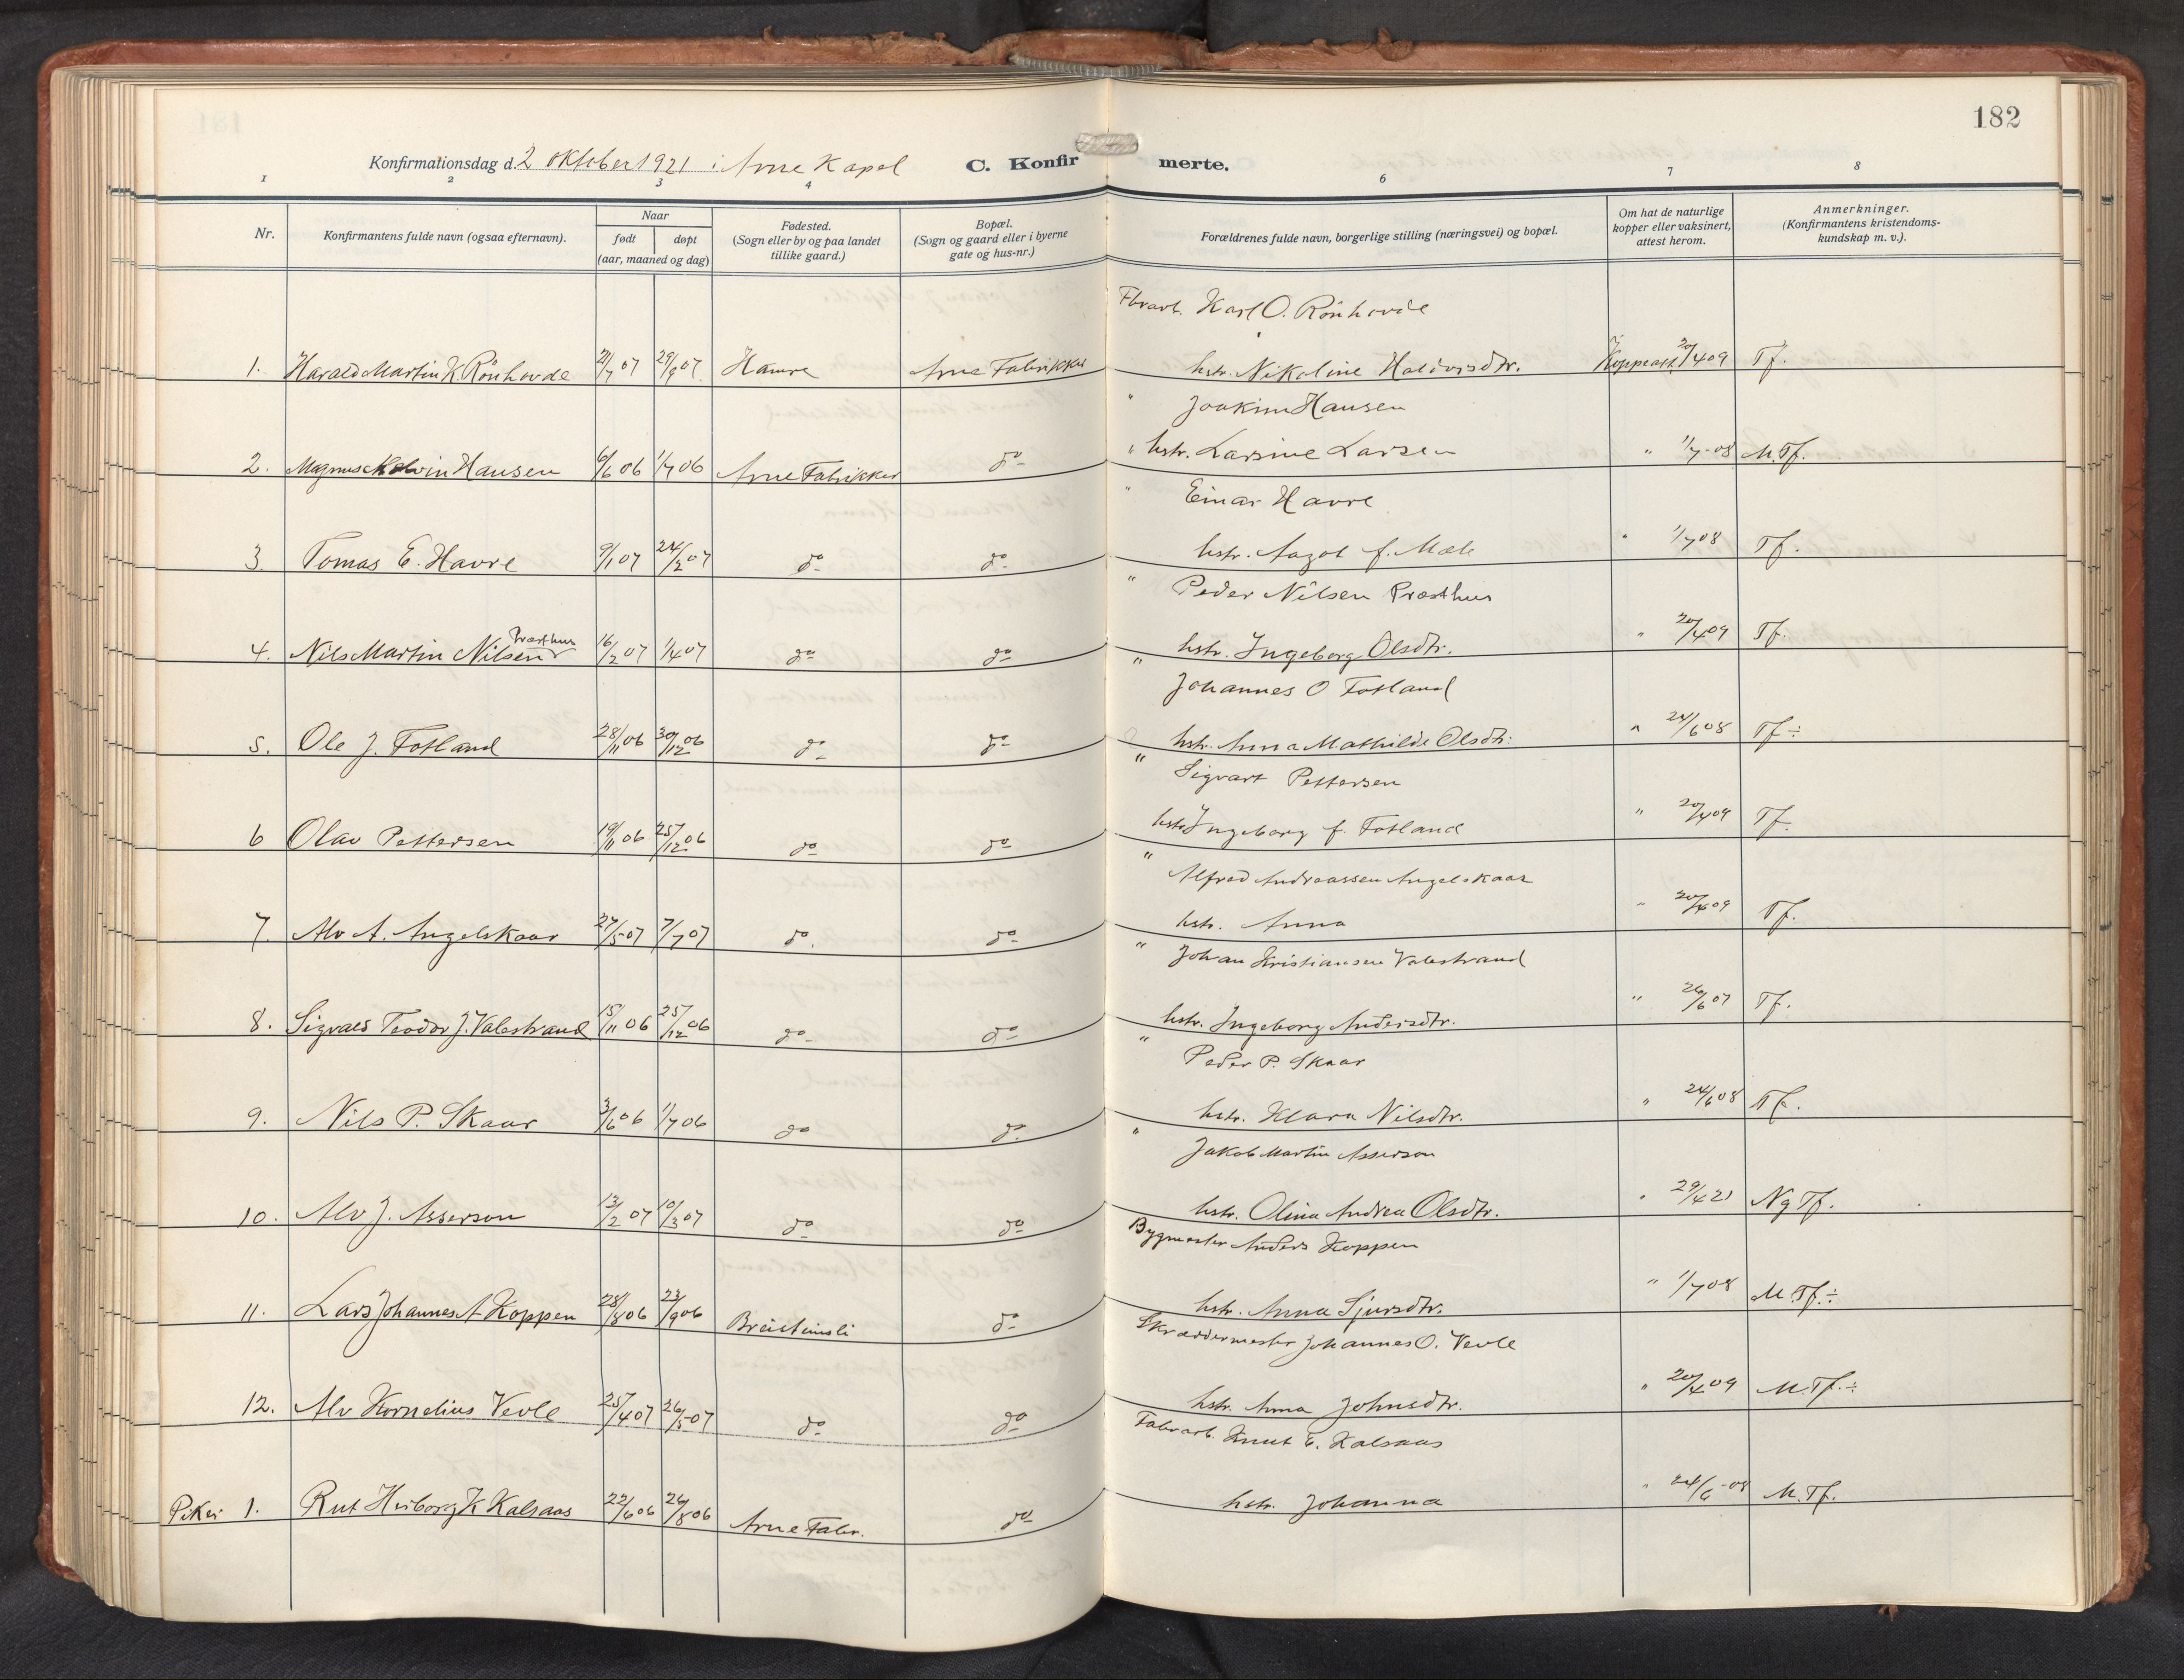 182
Konfirmationsdag d. 2 oktober 1921 i Arne Kapel C. Konfir merte.
1 2 3 4 6 7 8
Nr.
Konfirmantens fulde navn (ogsaa efternavn).
Naar
født døpt
(aar, maaned og dag)
Fødested.
(Sogn eller by og paa landet
tillike gaard.)
Bopæl.
(Sogn og gaard eller i byerne
gate og hus-nr.)
Forældrenes fulde navn, borgerlige stilling (næringsvei) og bopæl.
Om hat de naturlige
kopper eller vaksinert,
attest herom.
Anmerkninger.
(Konfirmantens kristendoms-
kundskap m. v.).
Fbrarb. Karl O. Rönhovde
1. Harald Martin K. Rönhovde 21/7 07 29/9 07 Hamre Arne Fabrikker hstr. Nikoline Haldorsdtr. Koppeatt. 20/4 09 Tf.
" Joakim Hansen
2. Magnus Hansen 6/6 06 1/7 06 Arne Fabrikker do " hstr. Larsine Larsen " 1/7-08 M.Tf.
" Einar Havre
3. Tomas E. Havre 9/1 07 24/2 07 do do hstr. Aagot f. Mæle " 1/7 08 Tf.
" Peder Nilsen Præsthus
Præsthus
4. Nils Martin Nilsen 16/2 07 1/4 07 do do hstr. Ingeborg Olsdtr. " 20/4 09 Tf.
" Johannes O Fotland
5. Ole J. Fotland 28/11 06 30/12 06 do do hstr. Anna Mathilde Olsdtr. " 24/6 08 Tf ÷
" Sigvart Pettersen
6 Olav Pettersen 19/11 06 25/12 06 do do hstr. Ingeborg f. Fotland " 20/4 09 Tf.
" Alfred Andreassen Angelskaar
7. Alv A. Angelskaar 27/5 07 7/7 07 do. do hstr. Anna " 20/4 09 Tf.
" Johan Kristiansen Valestrand
8. Sigvald Teodor J. Valestrand 15/11 06 25/12 06 do do hstr. Ingeborg Andersdtr. " 26/6 07 Tf.
" Peder P. Skaar
9. Nils P. Skaar 3/6 06 1/7 06 do do hstr. Klara Nilsdtr. " 24/6 08 Tf.
" Jakob Martin Asserson
10. Alv J. Asserson 13/2 07 10/3 07 do do hstr. Olina Andrea Olsdtr. " 29/4 21 Ng Tf.
Bygmester Anders Koppen
11. Lars Johannes A Koppen 28/8 06 23/9 06 Breisteinsli do hstr. Anna Sjursdtr. " 1/7 08 M.Tf. ÷
Skræddermester Johannes O. Vevle
12. Alv Kornelius Vevle 25/4 07 26/5 07 do do hstr. Anna Johnsdtr. " 20/4 09 M.Tf. ÷
Fabrarb. Knut E. Kalsaas
Piker 1. Rut Heiborg K Kalsaas 22/6 06 26/8 06 Arne Fabr. do hstr. Johanna " 24/6-08 M.Tf.